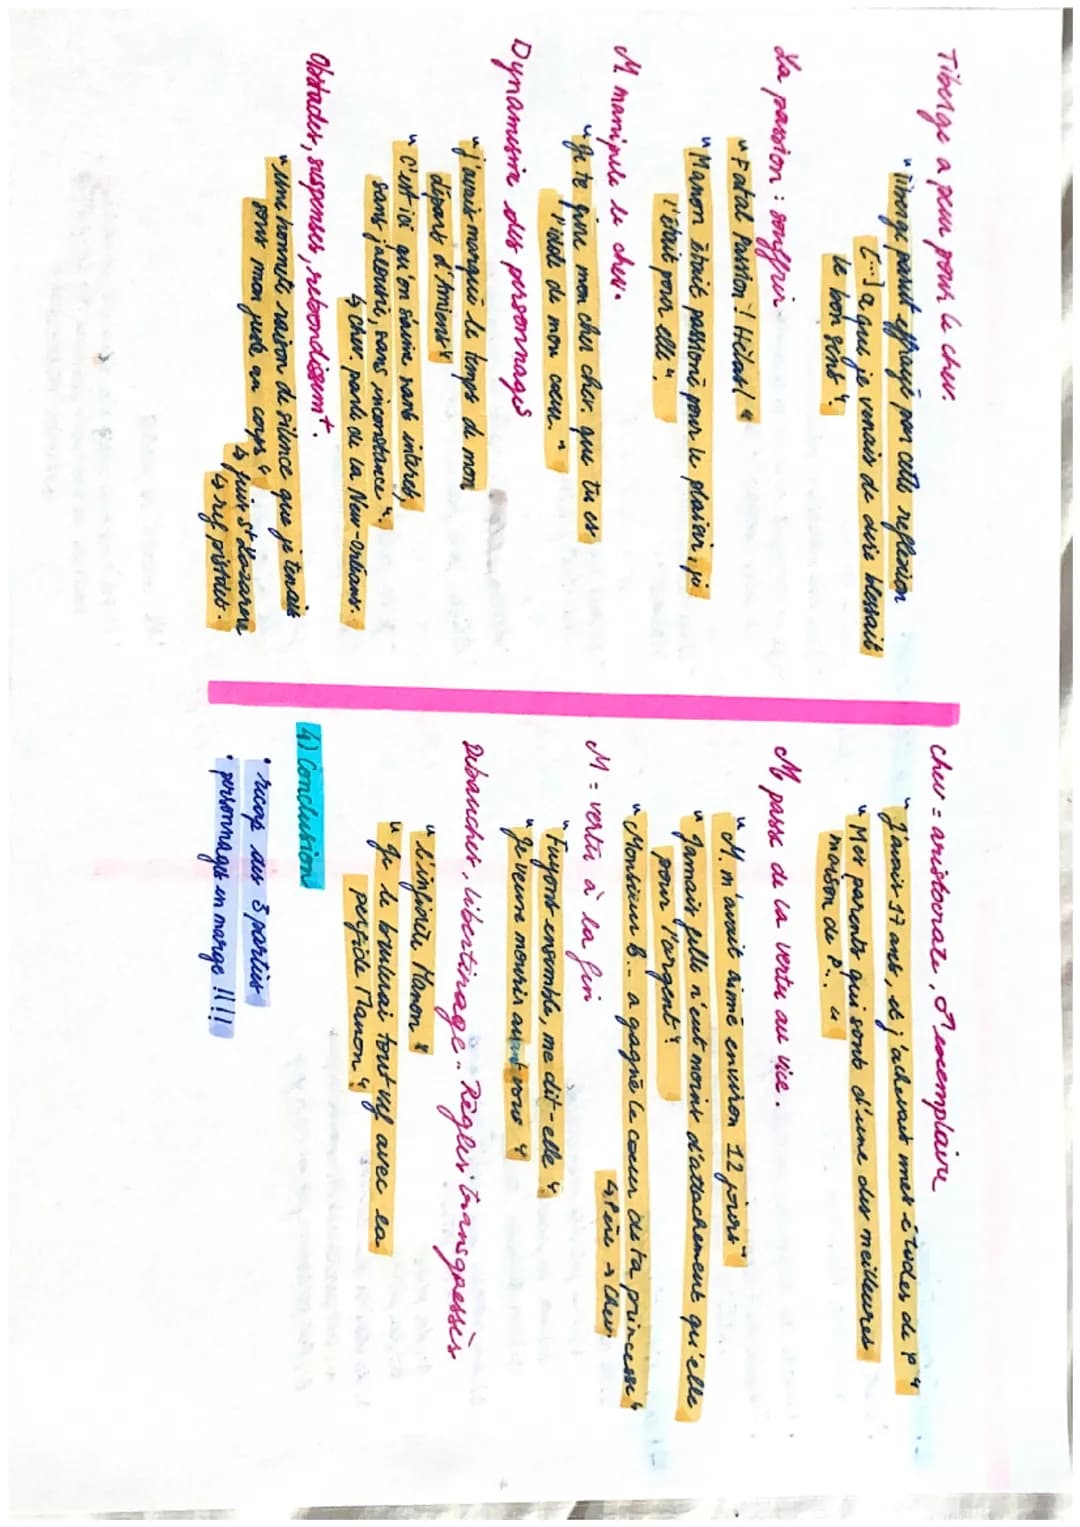 Tiberge a peur pour le chev.
"Tiberge parut effrayé par cette reflexion
[...] a que je venais de dire blessait
le bon sens".
La passion : souffrir
"Fatal Passion ! Hélas !"
"Manon était passioné pour le plaisir, je
l'était pour elle".
M manipule le chev.
"Je te jure mon cher chev. que tu es
l'idole de mon cœur."
Dynamisme des personnages
"j'avais marqué le temps de mon
départ d'Amiens"
"C'est ici qu'on s'aime sans intêret,
sans jalousie, sans inconstance".
↳ chev. parle de la New-Orléans.
Obstacles, suspenses, rebondissemt.
"une honnête raison de silence que je tenais
sous mon juste au corps"
↳ fuir St Lazare
↳ ref pistolet.
chev = aristocrate, ♂ exemplaire
"J'avais 17 ans, et j'achevait mes études de p"
"Mes parents qui sont d'une des meilleures
maison de P..."
M passe de la vertu au vice.
"M. m'avait aimé environ 12 jours"
"Jamais fille n'eut moins d'attachement qu'elle
pour l'argent"
"Monsieur B... a gagné le cœur de ta princesse"
↳ Père → Chev
M = vertu à la fin
"Fuyons ensemble, me dit-elle"
"Je veux mourir avant vous"
Débauches, libertinage.. Règles transgressés
"L'infidèle Manon"
"Je le brulerai tout vif avec sa
perfide Manon"
4) Conclusion
• recap des 3 parties
• personnages en marge !!!!